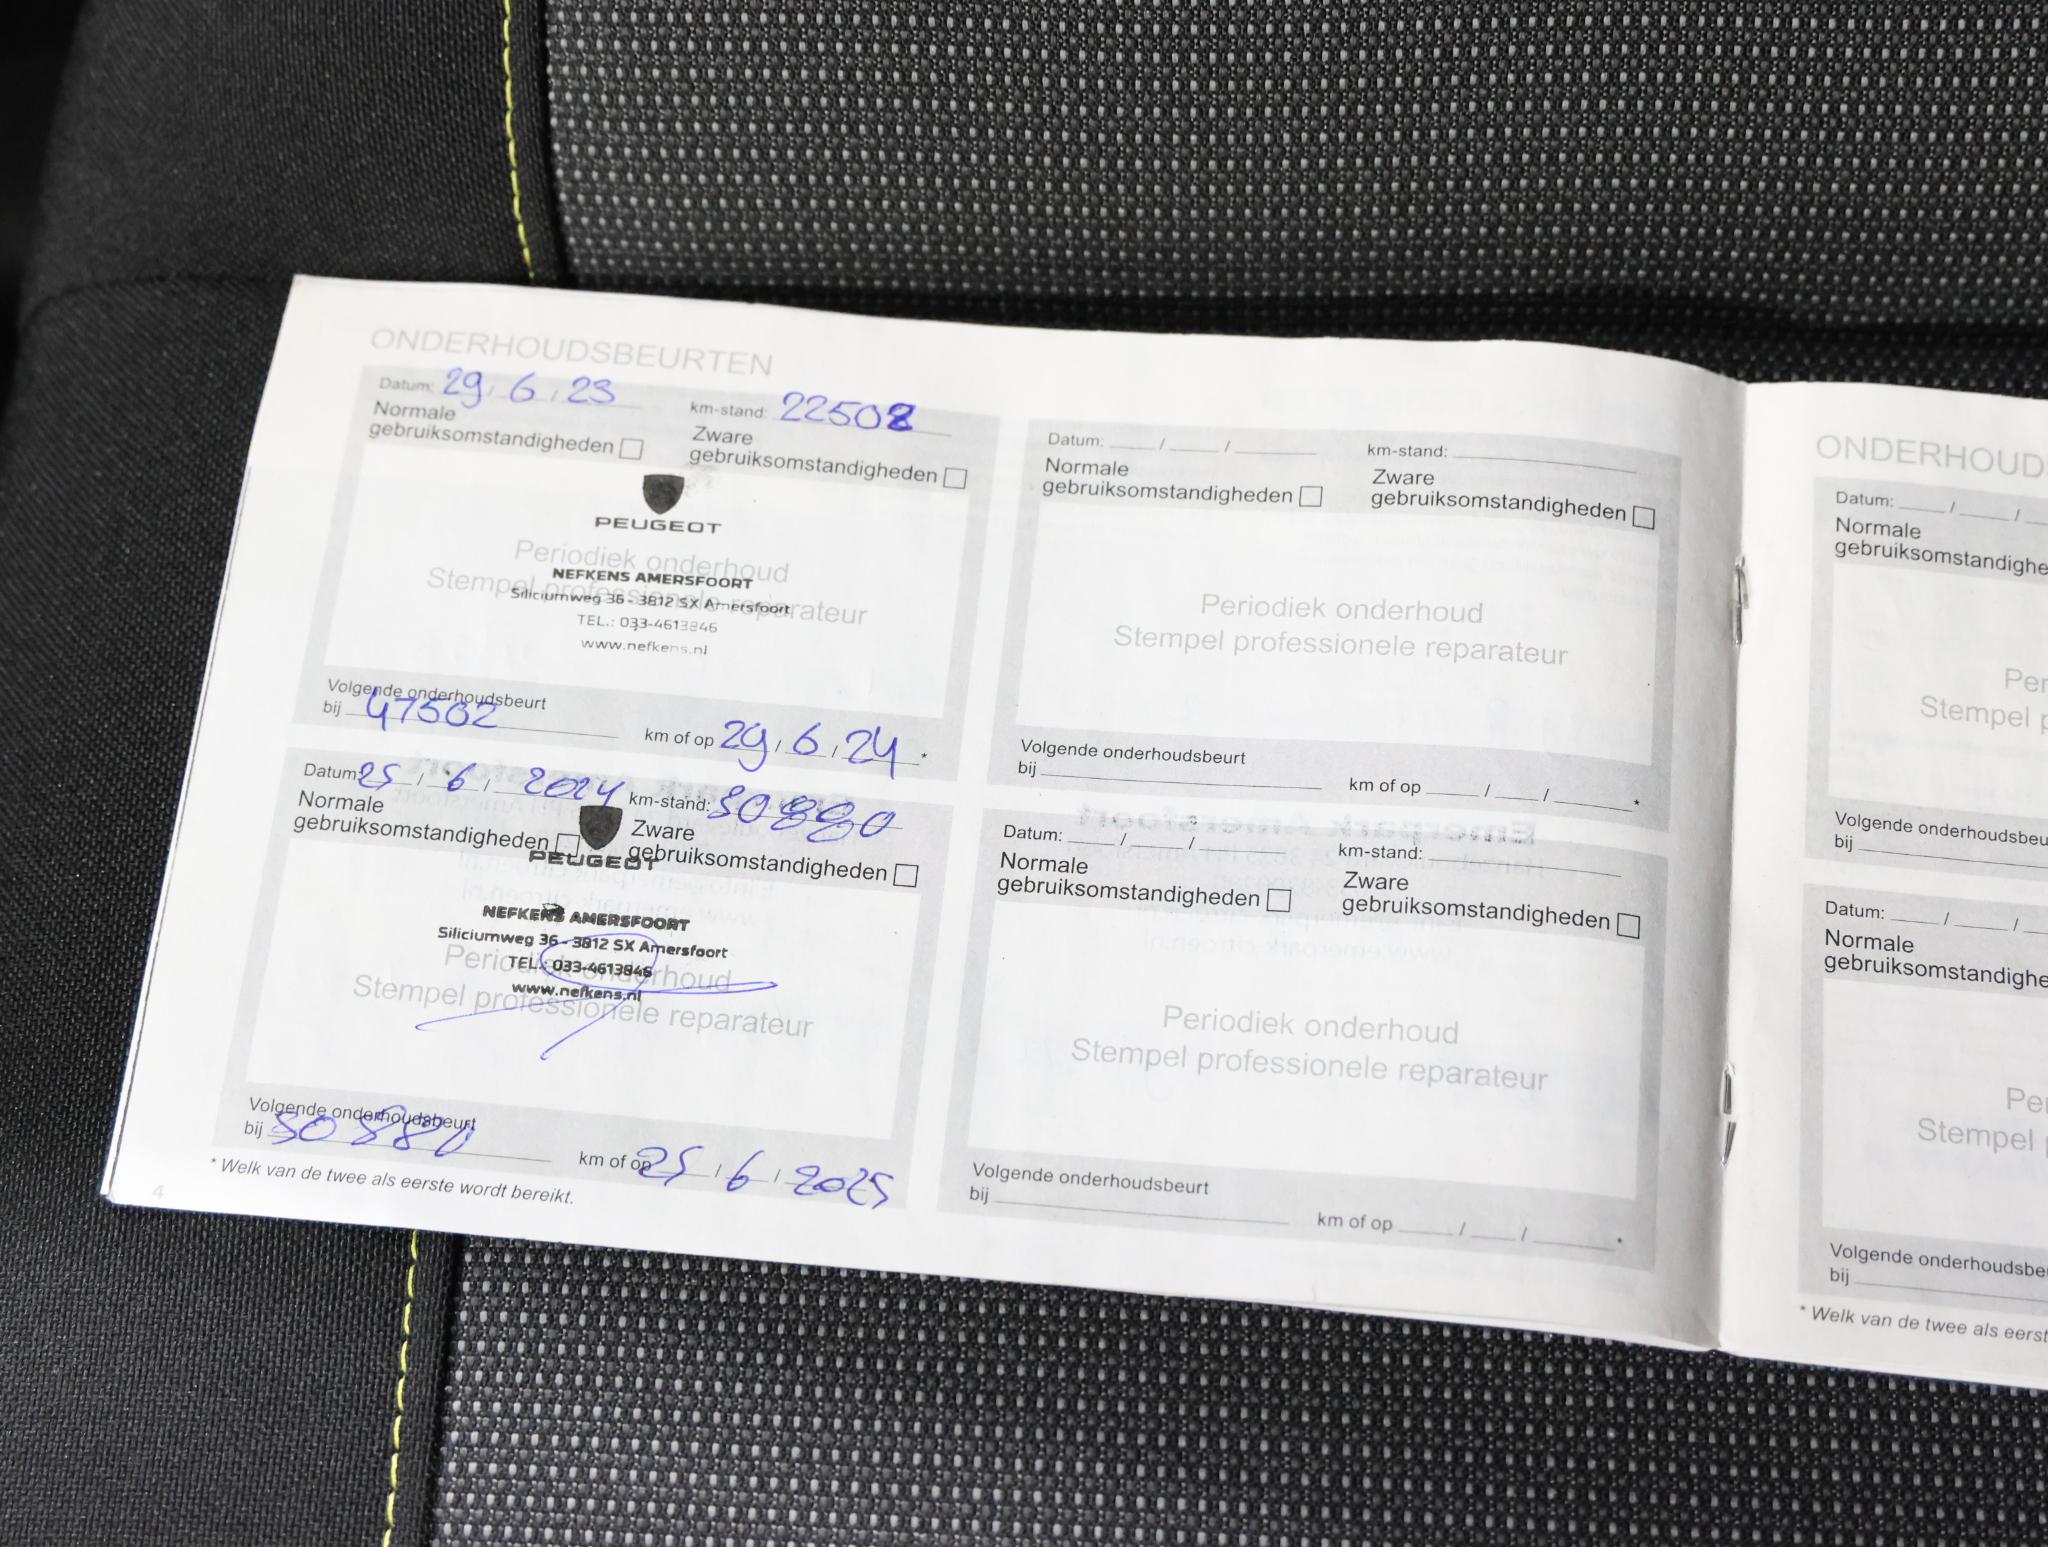 ONDERHOUDSBEURTEN
Datum: 29 / 6 / 23 km-stand: 22502
Normale gebruiksomstandigheden
Zware gebruiksomstandigheden
PEUGEOT
Periodiek onderhoud
NEFKENS AMERSFOORT
Stempel professionele reparateur
Siliciumweg 36 - 3812 SX Amersfoort
TEL.: 033-4613846
www.nefkens.nl
Volgende onderhoudsbeurt
bij 47502 km of op 29 / 6 / 24 *
Datum: 25 / 6 / 2024 km-stand: 30880
Normale gebruiksomstandigheden
Zware gebruiksomstandigheden
PEUGEOT
NEFKENS AMERSFOORT
Siliciumweg 36 - 3812 SX Amersfoort
Periodiek onderhoud
TEL.: 033-4613846
www.nefkens.nl
Stempel professionele reparateur
Volgende onderhoudsbeurt
bij 50880 km of op 25 / 6 / 2025
* Welk van de twee als eerste wordt bereikt.
4
Datum: / / km-stand:
Normale gebruiksomstandigheden
Zware gebruiksomstandigheden
Periodiek onderhoud
Stempel professionele reparateur
Volgende onderhoudsbeurt
bij km of op / / *
Datum: / / km-stand:
Normale gebruiksomstandigheden
Zware gebruiksomstandigheden
Periodiek onderhoud
Stempel professionele reparateur
Volgende onderhoudsbeurt
bij km of op / / *
ONDERHOUDS
Datum: / /
Normale
gebruiksomstandighe
Per
Stempel p
Volgende onderhoudsbeu
bij
Datum: / /
Normale
gebruiksomstandighe
Pe
Stempel p
Volgende onderhoudsbe
bij
* Welk van de twee als eerst